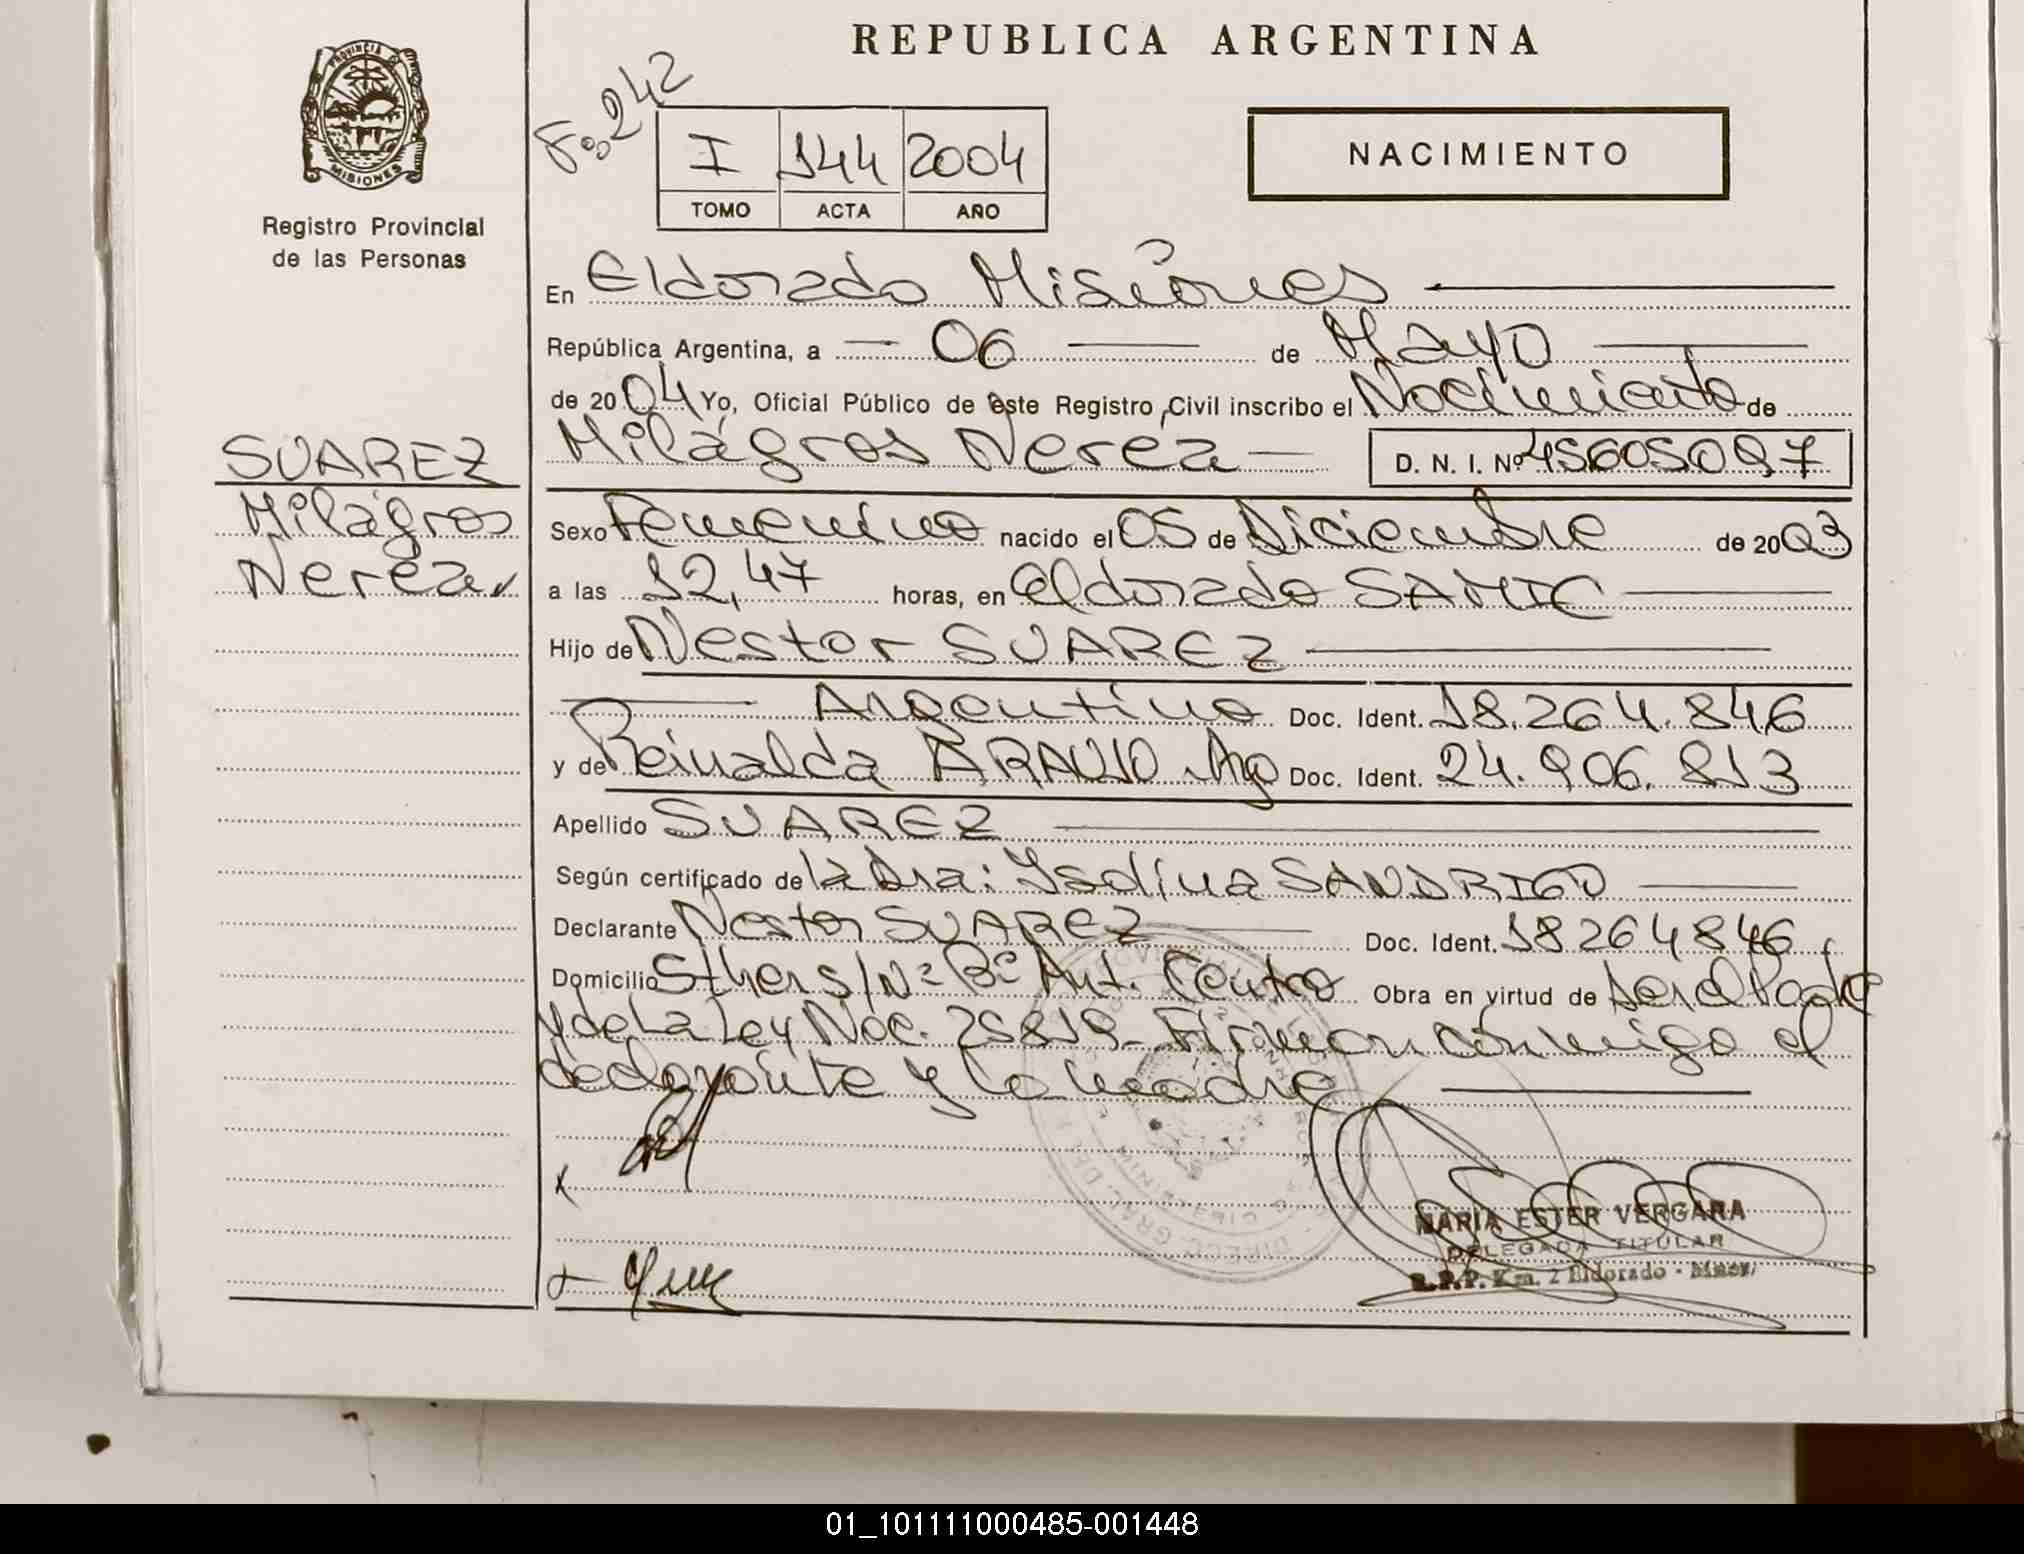 REPUBLICA ARGENTINA
PROVINCIA DE
MISIONES
Registro Provincial
de las Personas
Fo 242
I 144 2004
TOMO ACTA AÑO
NACIMIENTO
En Eldorado Misiones
República Argentina, a 06 de Mayo
de 2004 Yo, Oficial Público de este Registro Civil inscribo el Nacimiento de
Milagros Nerea D. N. I. Nº 45605097
SUAREZ
Milagros
Nerea
Sexo Femenino nacido el 05 de Diciembre de 2003
a las 12,47 horas, en Eldorado SAMIC
Hijo de Nestor SUAREZ
Argentino Doc. Ident. 18.264.846
y de Reinalda ARAUJO Arg Doc. Ident. 24.906.813
Apellido SUAREZ
Según certificado de la Dra: Ysolina SANDRIGO
Declarante Nestor SUAREZ Doc. Ident. 18264846
Domicilio Sther s/Nº Bº Ant. Centro Obra en virtud de ser el Padre
y de La Ley Nac. 25819- Firman conmigo el
declarante y la madre
MARIA ESTER VERGARA
DELEGADA TITULAR
R.P.P. Km. 2 Eldorado - Mnes.
01_101111000485-001448